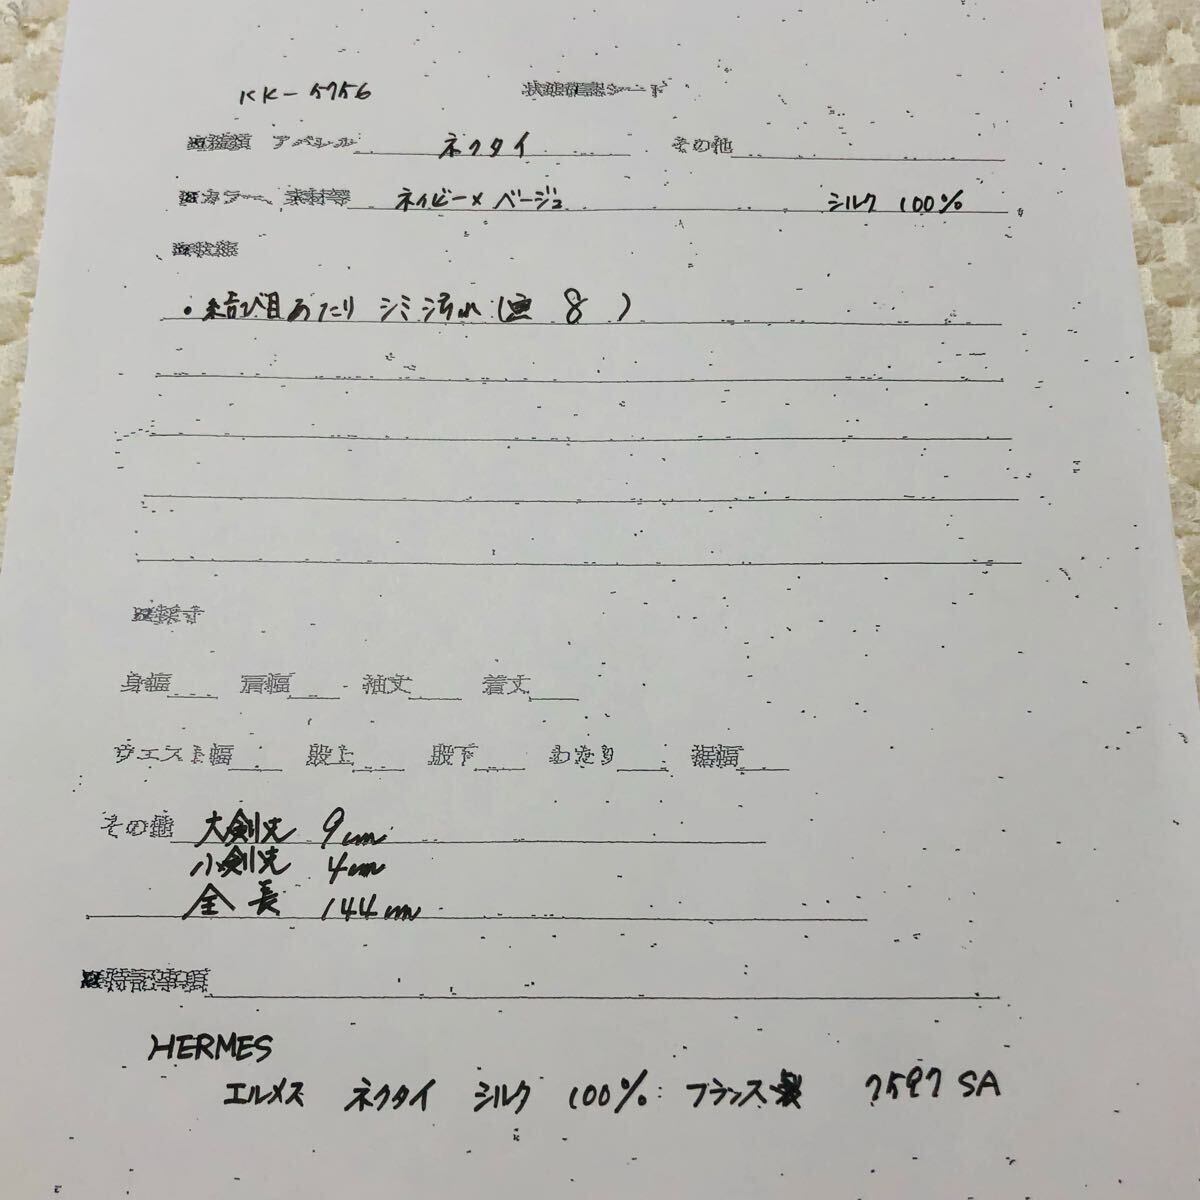 KK-5756 状態確認シート
※種類 アパレル ネクタイ その他
※カラー、素材等 ネイビー×ベージュ シルク 100%
※状態
・結び目あたり シミ汚れ(画 8 )
※採寸
身幅 肩幅 袖丈 着丈
ウエスト幅 股上 股下 わたり 裾幅
その他 大剣先 9cm
小剣先 4cm
全長 144cm
※特記事項
HERMES
エルメス ネクタイ シルク 100% フランス製 7597 SA